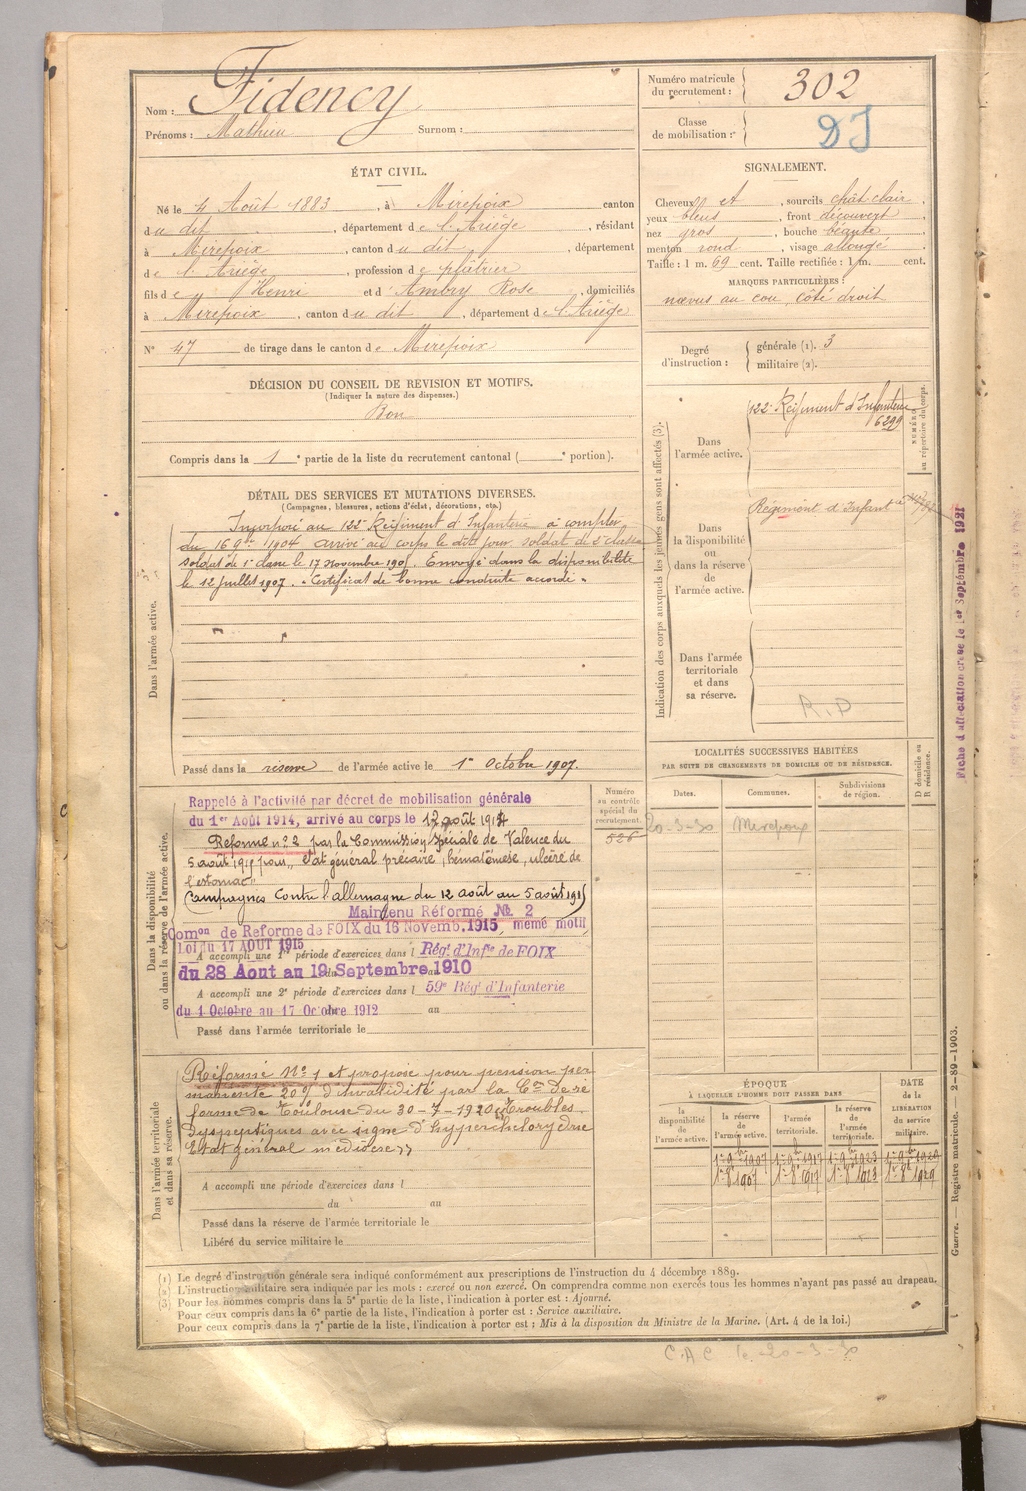 Nom : Fidency
Prénoms : Mathieu Surnom :
Numéro matricule du recrutement : 302
Classe de mobilisation :
ÉTAT CIVIL.
Né le 4 Août 1883, à Mirepoix canton
du dit, département de l'Ariège, résidant
à Mirepoix, canton du dit, département
de l'Ariège, profession de plâtrier
fils de Henri et d'Ambry Rose, domiciliés
à Mirepoix, canton du dit, département de l'Ariège
N° 47 de tirage dans le canton de Mirepoix
SIGNALEMENT.
Cheveux et, sourcils chât clair,
yeux bleus, front découvert,
nez gros, bouche béante,
menton rond, visage allongé
Taille : 1 m. 69 cent. Taille rectifiée : 1 m. cent.
MARQUES PARTICULIÈRES :
nœvus au cou, côté droit
Degré d'instruction : générale (1). 3
militaire (2).
DÉCISION DU CONSEIL DE REVISION ET MOTIFS.
(Indiquer la nature des dispenses.)
Bon
Compris dans la 1e partie de la liste du recrutement cantonal ( e portion).
DÉTAIL DES SERVICES ET MUTATIONS DIVERSES.
(Campagnes, blessures, actions d'éclat, décorations, etc.)
Dans l'armée active.
Incorporé au 122e Régiment d'Infanterie à compter
du 16 9bre 1904 arrivé au corps le dit jour soldat de 2e classe
soldat de 1e classe le 17 novembre 1905. Envoyé dans la disponibilité
le 12 juillet 1907. "Certificat de bonne conduite accordé"
Passé dans la réserve de l'armée active le 1er Octobre 1907.
Indication des corps auxquels les jeunes gens sont affectés (3).
NUMÉRO au répertoire du corps.
Dans l'armée active.
122e Régiment d'Infanterie
6299
Dans la disponibilité ou dans la réserve de l'armée active.
Régiment d'Infantie
Dans l'armée territoriale et dans sa réserve.
R.D
Fiche d'affectation créée le 1er Septembre 1921
Dans la disponibilité ou dans la réserve de l'armée active.
Rappelé à l'activité par décret de mobilisation générale
du 1er Août 1914, arrivé au corps le 12 août 1914
Réformé n° 2 par la Commission spéciale de Valence du
5 août 1915 pour "Etat général précaire, hématémèse, ulcère de
l'estomac"
Campagnes Contre l'allemagne du 12 août au 5 août 1915
Maintenu Réformé № 2
Comon de Reforme de FOIX du 16 Novemb. 1915, meme motif
Loi du 17 AOUT 1915
A accompli une 1re période d'exercices dans l Régt d'Infie de FOIX
du 28 Aout au 19 Septembre 1910
A accompli une 2e période d'exercices dans l 59e Régt d'Infanterie
du 1 Octobre au 17 Octobre 1912 au
Passé dans l'armée territoriale le
Numéro au contrôle spécial du recrutement.
526
LOCALITÉS SUCCESSIVES HABITÉES
PAR SUITE DE CHANGEMENTS DE DOMICILE OU DE RÉSIDENCE.
Dates. Communes. Subdivisions de région. D domicile ou R résidence.
20-3-30 Mirepoix
Dans l'armée territoriale et dans sa réserve.
Réformé N° 1 et proposé pour pension per
manente 20% d'invalidité par la Con De ré
forme de Toulouse du 30-7-1920 "Troubles
Dyspeptiques avec signe d'hyperchlorydrie
Etat général médiocre"
A accompli une période d'exercices dans l
du au
Passé dans la réserve de l'armée territoriale le
Libéré du service militaire le
ÉPOQUE
À LAQUELLE L'HOMME DOIT PASSER DANS
DATE de la LIBÉRATION du service militaire.
la disponibilité de l'armée active.
la réserve de l'armée active.
l'armée territoriale.
la réserve de l'armée territoriale.
1er 9bre 1907 1er 9bre 1917 1er 9bre 1923 1er 9bre 1929
1er 8bre 1907 1er 8bre 1917 1er 8bre 1923 1er 8bre 1929
Guerre. — Registre matricule. — 2-89-1903.
(1) Le degré d'instruction générale sera indiqué conformément aux prescriptions de l'instruction du 4 décembre 1889.
(2) L'instruction militaire sera indiquée par les mots : exercé ou non exercé. On comprendra comme non exercés tous les hommes n'ayant pas passé au drapeau.
(3) Pour les hommes compris dans la 5e partie de la liste, l'indication à porter est : Ajourné.
Pour ceux compris dans la 6e partie de la liste, l'indication à porter est : Service auxiliaire.
Pour ceux compris dans la 7e partie de la liste, l'indication à porter est : Mis à la disposition du Ministre de la Marine. (Art. 4 de la loi.)
C.A.C le 20-3-30